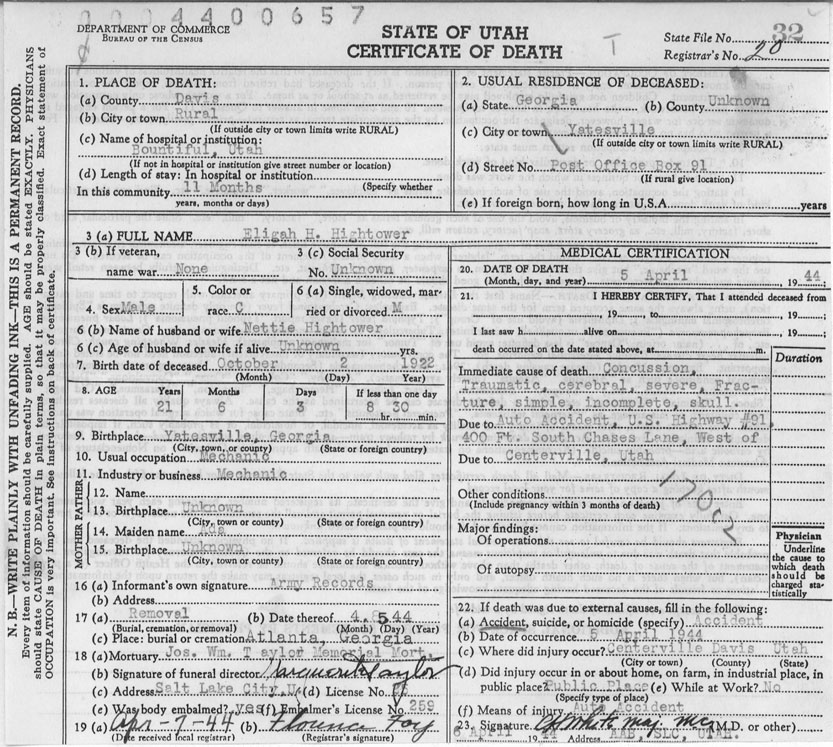 0004400657
DEPARTMENT OF COMMERCE
BUREAU OF THE CENSUS
STATE OF UTAH
CERTIFICATE OF DEATH
T
State File No. 32
Registrar's No. 20
N. B.—WRITE PLAINLY WITH UNFADING INK—THIS IS A PERMANENT RECORD.
Every item of information should be carefully supplied. AGE should be stated EXACTLY. PHYSICIANS
should state CAUSE OF DEATH in plain terms, so that it may be properly classified. Exact statement of
OCCUPATION is very important. See instructions on back of certificate.
1. PLACE OF DEATH:
(a) County Davis
(b) City or town Rural
(If outside city or town limits write RURAL)
(c) Name of hospital or institution:
Bountiful, Utah
(If not in hospital or institution give street number or location)
(d) Length of stay: In hospital or institution
(Specify whether
In this community 11 Months
years, months or days)
2. USUAL RESIDENCE OF DECEASED:
(a) State Georgia (b) County Unknown
(c) City or town Yatesville
(If outside city or town limits write RURAL)
(d) Street No. Post Office Box 91
(If rural give location)
(e) If foreign born, how long in U.S.A. years
3 (a) FULL NAME Eligah H. Hightower
3 (b) If veteran,
name war None
3 (c) Social Security
No. Unknown
4. Sex Male
5. Color or
race C
6 (a) Single, widowed, mar-
ried or divorced M
6 (b) Name of husband or wife Nettie Hightower
6 (c) Age of husband or wife if alive Unknown yrs.
7. Birth date of deceased October 2 1922
(Month) (Day) (Year)
8. AGE Years Months Days If less than one day
21 6 3 8 hr. 30 min.
9. Birthplace Yatesville, Georgia
(City, town, or county) (State or foreign country)
10. Usual occupation Mechanic
11. Industry or business Mechanic
FATHER
12. Name
13. Birthplace Unknown
(City, town or county) (State or foreign country)
MOTHER
14. Maiden name
15. Birthplace Unknown
(City, town or county) (State or foreign country)
16 (a) Informant's own signature Army Records
(b) Address
17 (a) Removal (b) Date thereof 4. 5 44
(Burial, cremation, or removal) (Month) (Day) (Year)
(c) Place: burial or cremation Atlanta, Georgia
18 (a) Mortuary Jos. Wm. Taylor Memorial Mort.
(b) Signature of funeral director Marguerite Taylor
(c) Address Salt Lake City, U. (d) License No.
(e) Was body embalmed? yes (f) Embalmer's License No 259
19 (a) Apr-7-44 (b) Florence Foy
(Date received local registrar) (Registrar's signature)
MEDICAL CERTIFICATION
20. DATE OF DEATH
(Month, day, and year) 5 April , 19 44 ;
21. I HEREBY CERTIFY, That I attended deceased from
, 19 , to , 19 ;
I last saw h alive on , 19 ;
death occurred on the date stated above, at m.
Duration
Immediate cause of death Concussion,
Traumatic, cerebral, severe, Frac-
ture, simple, incomplete, skull.
Due to Auto Accident, U.S. Highway #91
400 Ft. South Chases Lane, West of
Due to Centerville, Utah
170.2
Other conditions
(Include pregnancy within 3 months of death)
Major findings:
Of operations
Of autopsy
Physician
Underline
the cause to
which death
should be
charged sta-
tistically
22. If death was due to external causes, fill in the following:
(a) Accident, suicide, or homicide (specify) Accident
(b) Date of occurrence 5 April 1944
(c) Where did injury occur? Centerville Davis Utah
(City or town) (County) (State)
(d) Did injury occur in or about home, on farm, in industrial place, in
public place? Public Place (e) While at Work? No
(Specify type of place)
(f) Means of injury Auto Accident
23. Signature Maj. MC (M.D. or other)
6 April 19 44 Address AAB, SLC, UTAH.